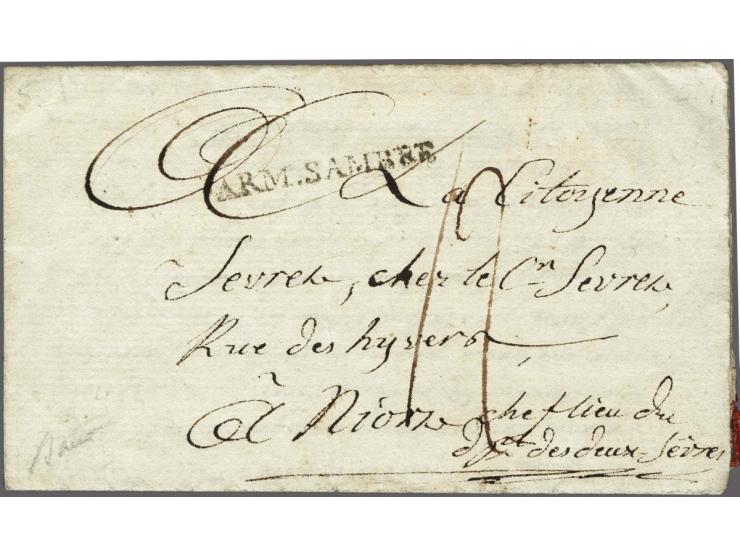 ARM.SAMBRE
La Citoyenne
Sevrete, chez le Cn Sevrete,
Rue des hyvers,
à Niort chef lieu du
dpt des deux-Sèvres